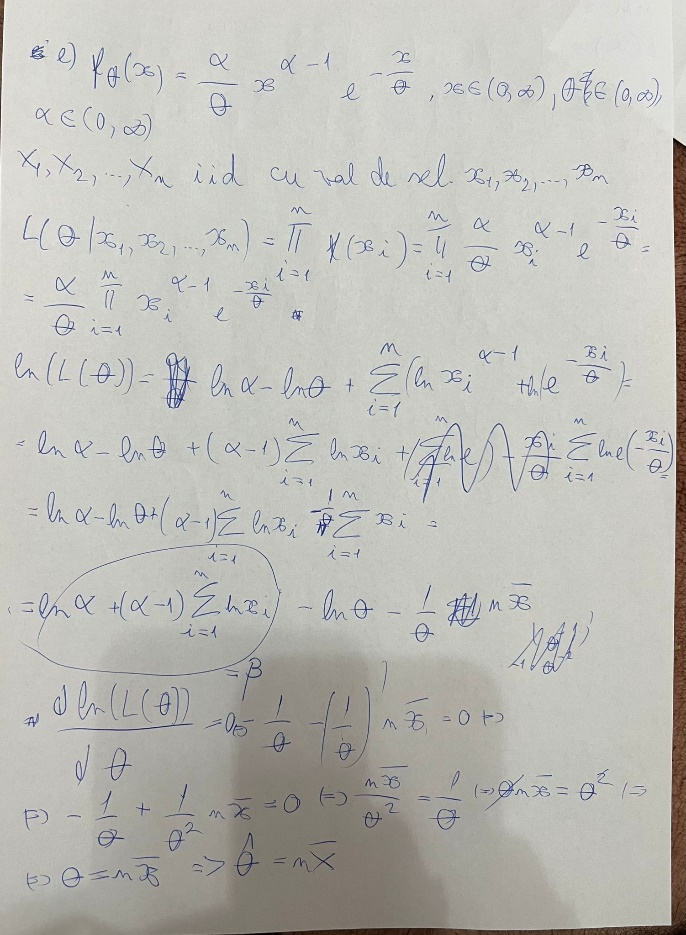 e) f_θ(x) = α/θ x^(α-1) e^(-x/θ), x∈(0,∞), θ∈(0,∞),
α∈(0,∞)
X₁, X₂, ..., Xₙ iid cu val de sel. x₁, x₂, ..., xₙ
L(θ|x₁, x₂, ..., xₙ) = ∏_{i=1}^{n} f(xᵢ) = ∏_{i=1}^{n} α/θ xᵢ^(α-1) e^(-xᵢ/θ) =
= α/θ ∏_{i=1}^{n} xᵢ^(α-1) e^(-xᵢ/θ)
ln(L(θ)) = ln α - ln θ + ∑_{i=1}^{n} (ln xᵢ^(α-1) + ln(e^(-xᵢ/θ)) =
= ln α - ln θ + (α-1) ∑_{i=1}^{n} ln xᵢ + ∑_{i=1}^{n} ln e (-xᵢ/θ) =
= ln α - ln θ + (α-1) ∑_{i=1}^{n} ln xᵢ - 1/θ ∑_{i=1}^{n} xᵢ =
= ln α + (α-1) ∑_{i=1}^{n} ln xᵢ - ln θ - 1/θ n x̄
= β
d ln(L(θ))/d θ = 0 - 1/θ - (1/θ)' n x̄ = 0 ⇔
⇔ - 1/θ + 1/θ² n x̄ = 0 ⇔ n x̄/θ² = 1/θ ⇔ θ n x̄ = θ² ⇔
⇔ θ = n x̄ => θ̂ = n X̄